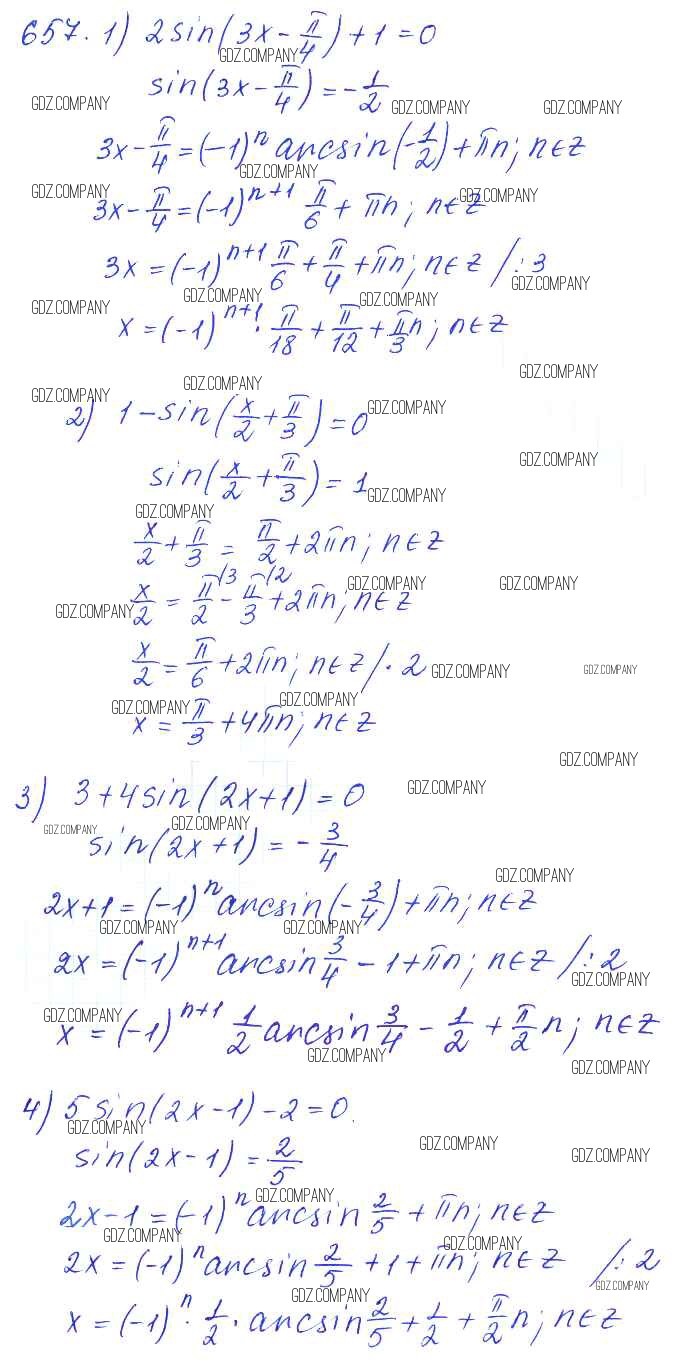 657. 1) 2sin(3x - π/4) + 1 = 0
sin(3x - π/4) = -1/2
3x - π/4 = (-1)^n arcsin(-1/2) + πn; n∈Z
3x - π/4 = (-1)^(n+1) π/6 + πn; n∈Z
3x = (-1)^(n+1) π/6 + π/4 + πn; n∈Z /:3
x = (-1)^(n+1) · π/18 + π/12 + π/3 n; n∈Z
2) 1 - sin(x/2 + π/3) = 0
sin(x/2 + π/3) = 1
x/2 + π/3 = π/2 + 2πn; n∈Z
x/2 = π/2 \3 - π/3 \2 + 2πn; n∈Z
x/2 = π/6 + 2πn; n∈Z /·2
x = π/3 + 4πn; n∈Z
3) 3 + 4sin(2x+1) = 0
sin(2x+1) = -3/4
2x+1 = (-1)^n arcsin(-3/4) + πn; n∈Z
2x = (-1)^(n+1) arcsin 3/4 - 1 + πn; n∈Z /:2
x = (-1)^(n+1) 1/2 arcsin 3/4 - 1/2 + π/2 n; n∈Z
4) 5sin(2x-1) - 2 = 0.
sin(2x-1) = 2/5
2x-1 = (-1)^n arcsin 2/5 + πn; n∈Z
2x = (-1)^n arcsin 2/5 + 1 + πn; n∈Z /:2
x = (-1)^n · 1/2 · arcsin 2/5 + 1/2 + π/2 n; n∈Z
GDZ.COMPANY